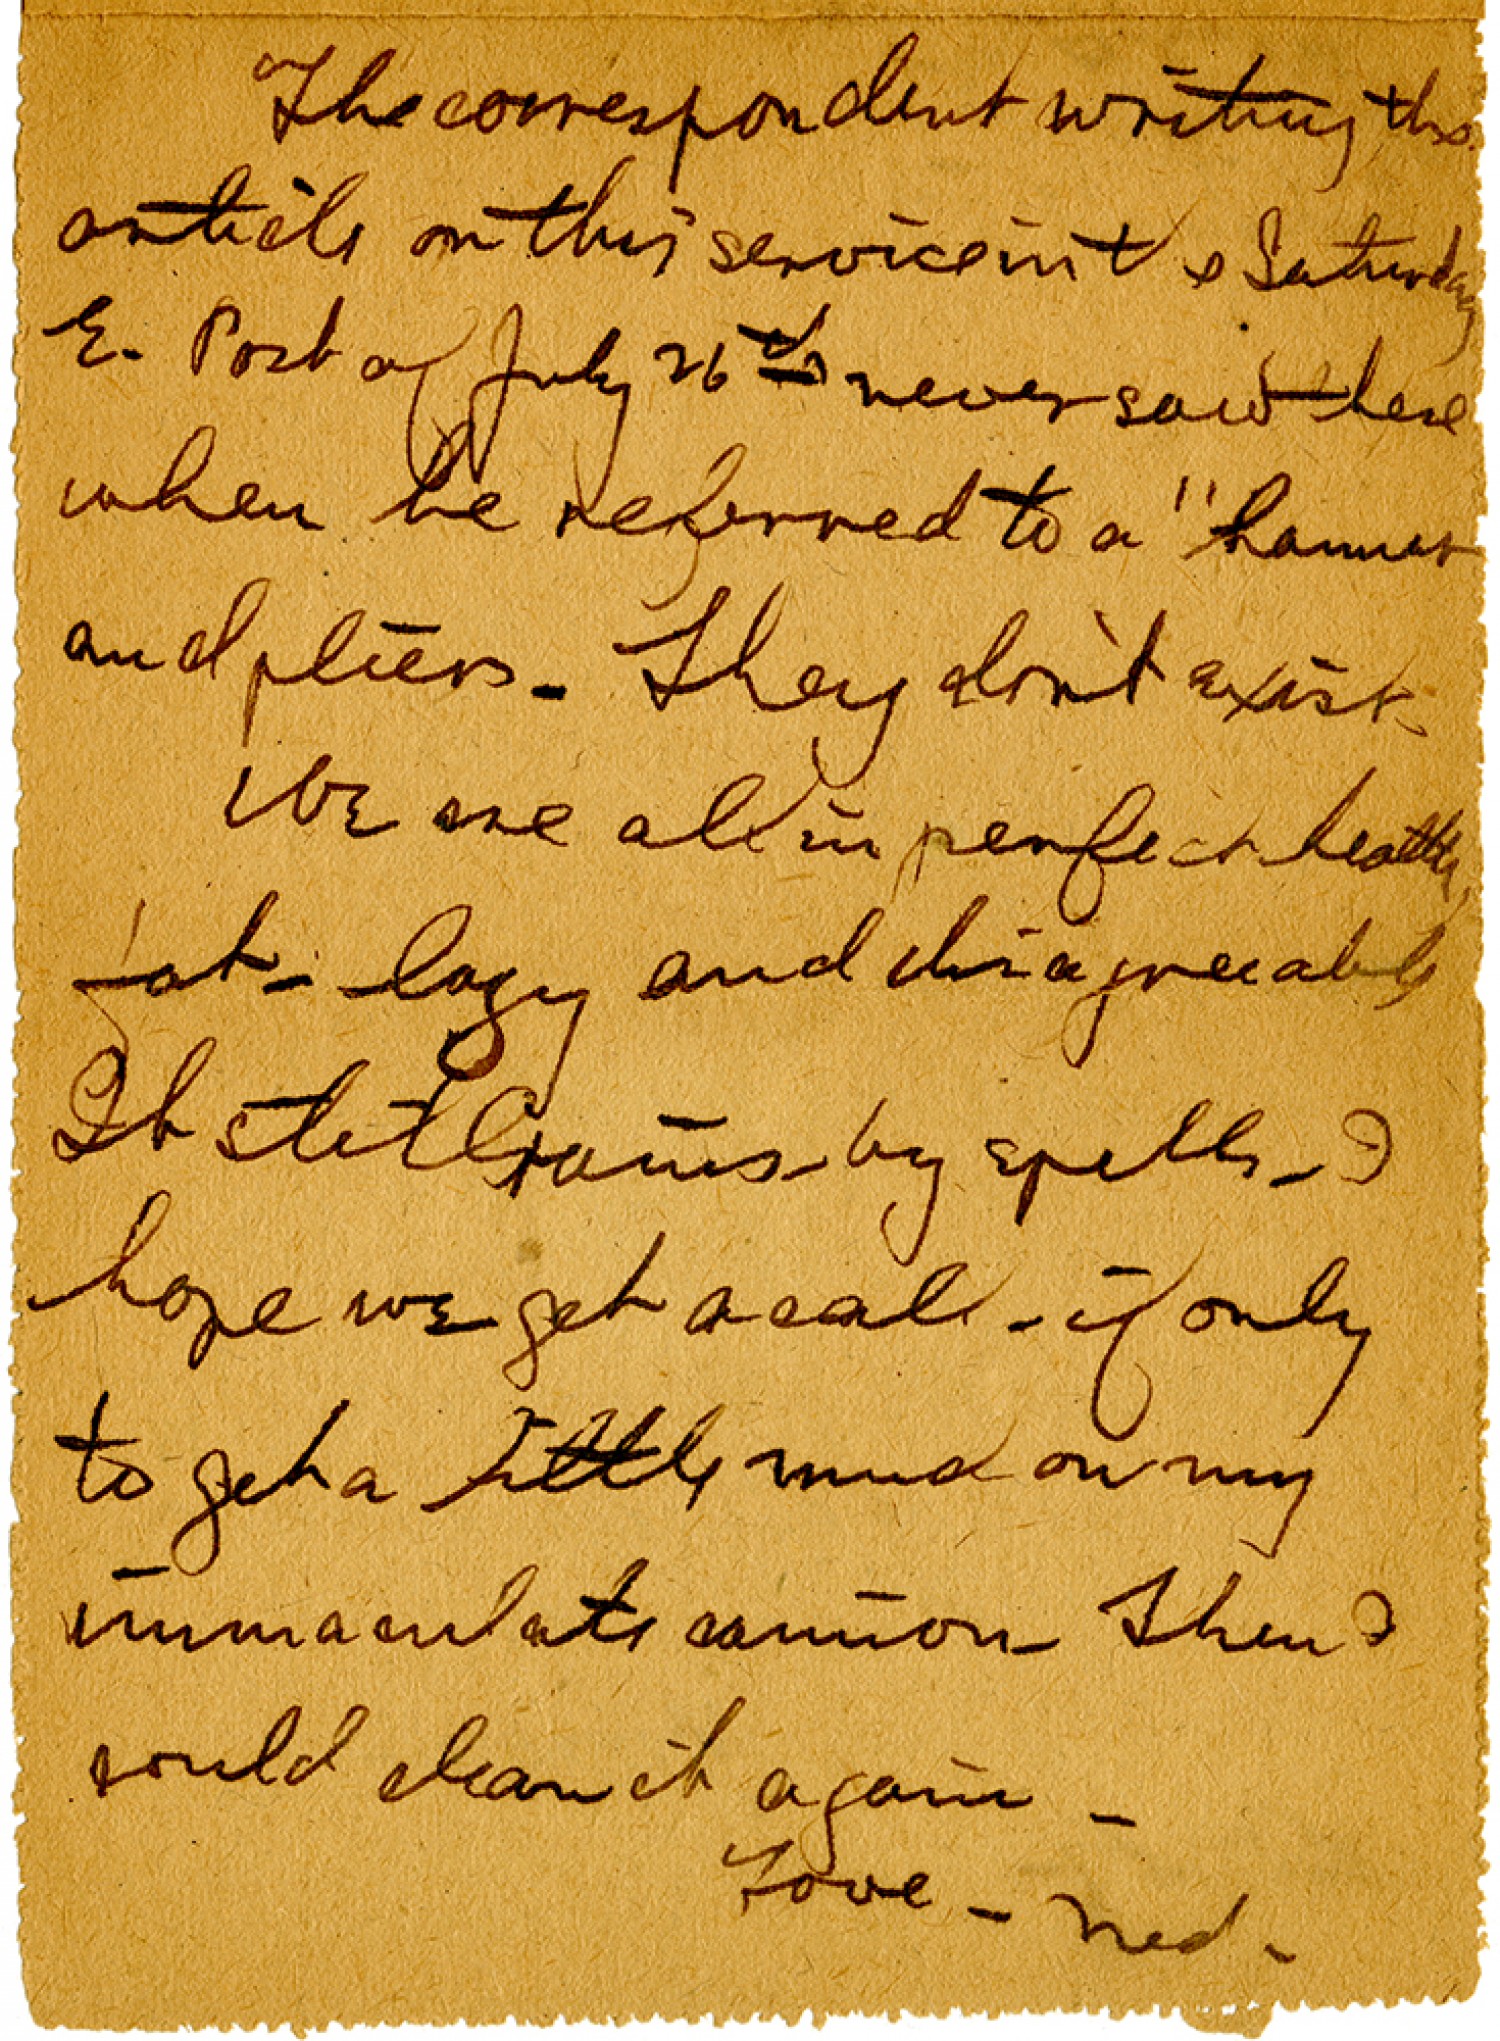 The correspondent writing the
article on this service in the Saturday
E. Post of July 26th never saw these
when he referred to a "hammer
and pliers. They don't exist.
We are all in perfect health,
fat - lazy and disagreeable
It still rains by spells - I
hope we get a call - if only
to get a little mud on my
immaculate camion Then I
could clean it again -
Love - Ned -